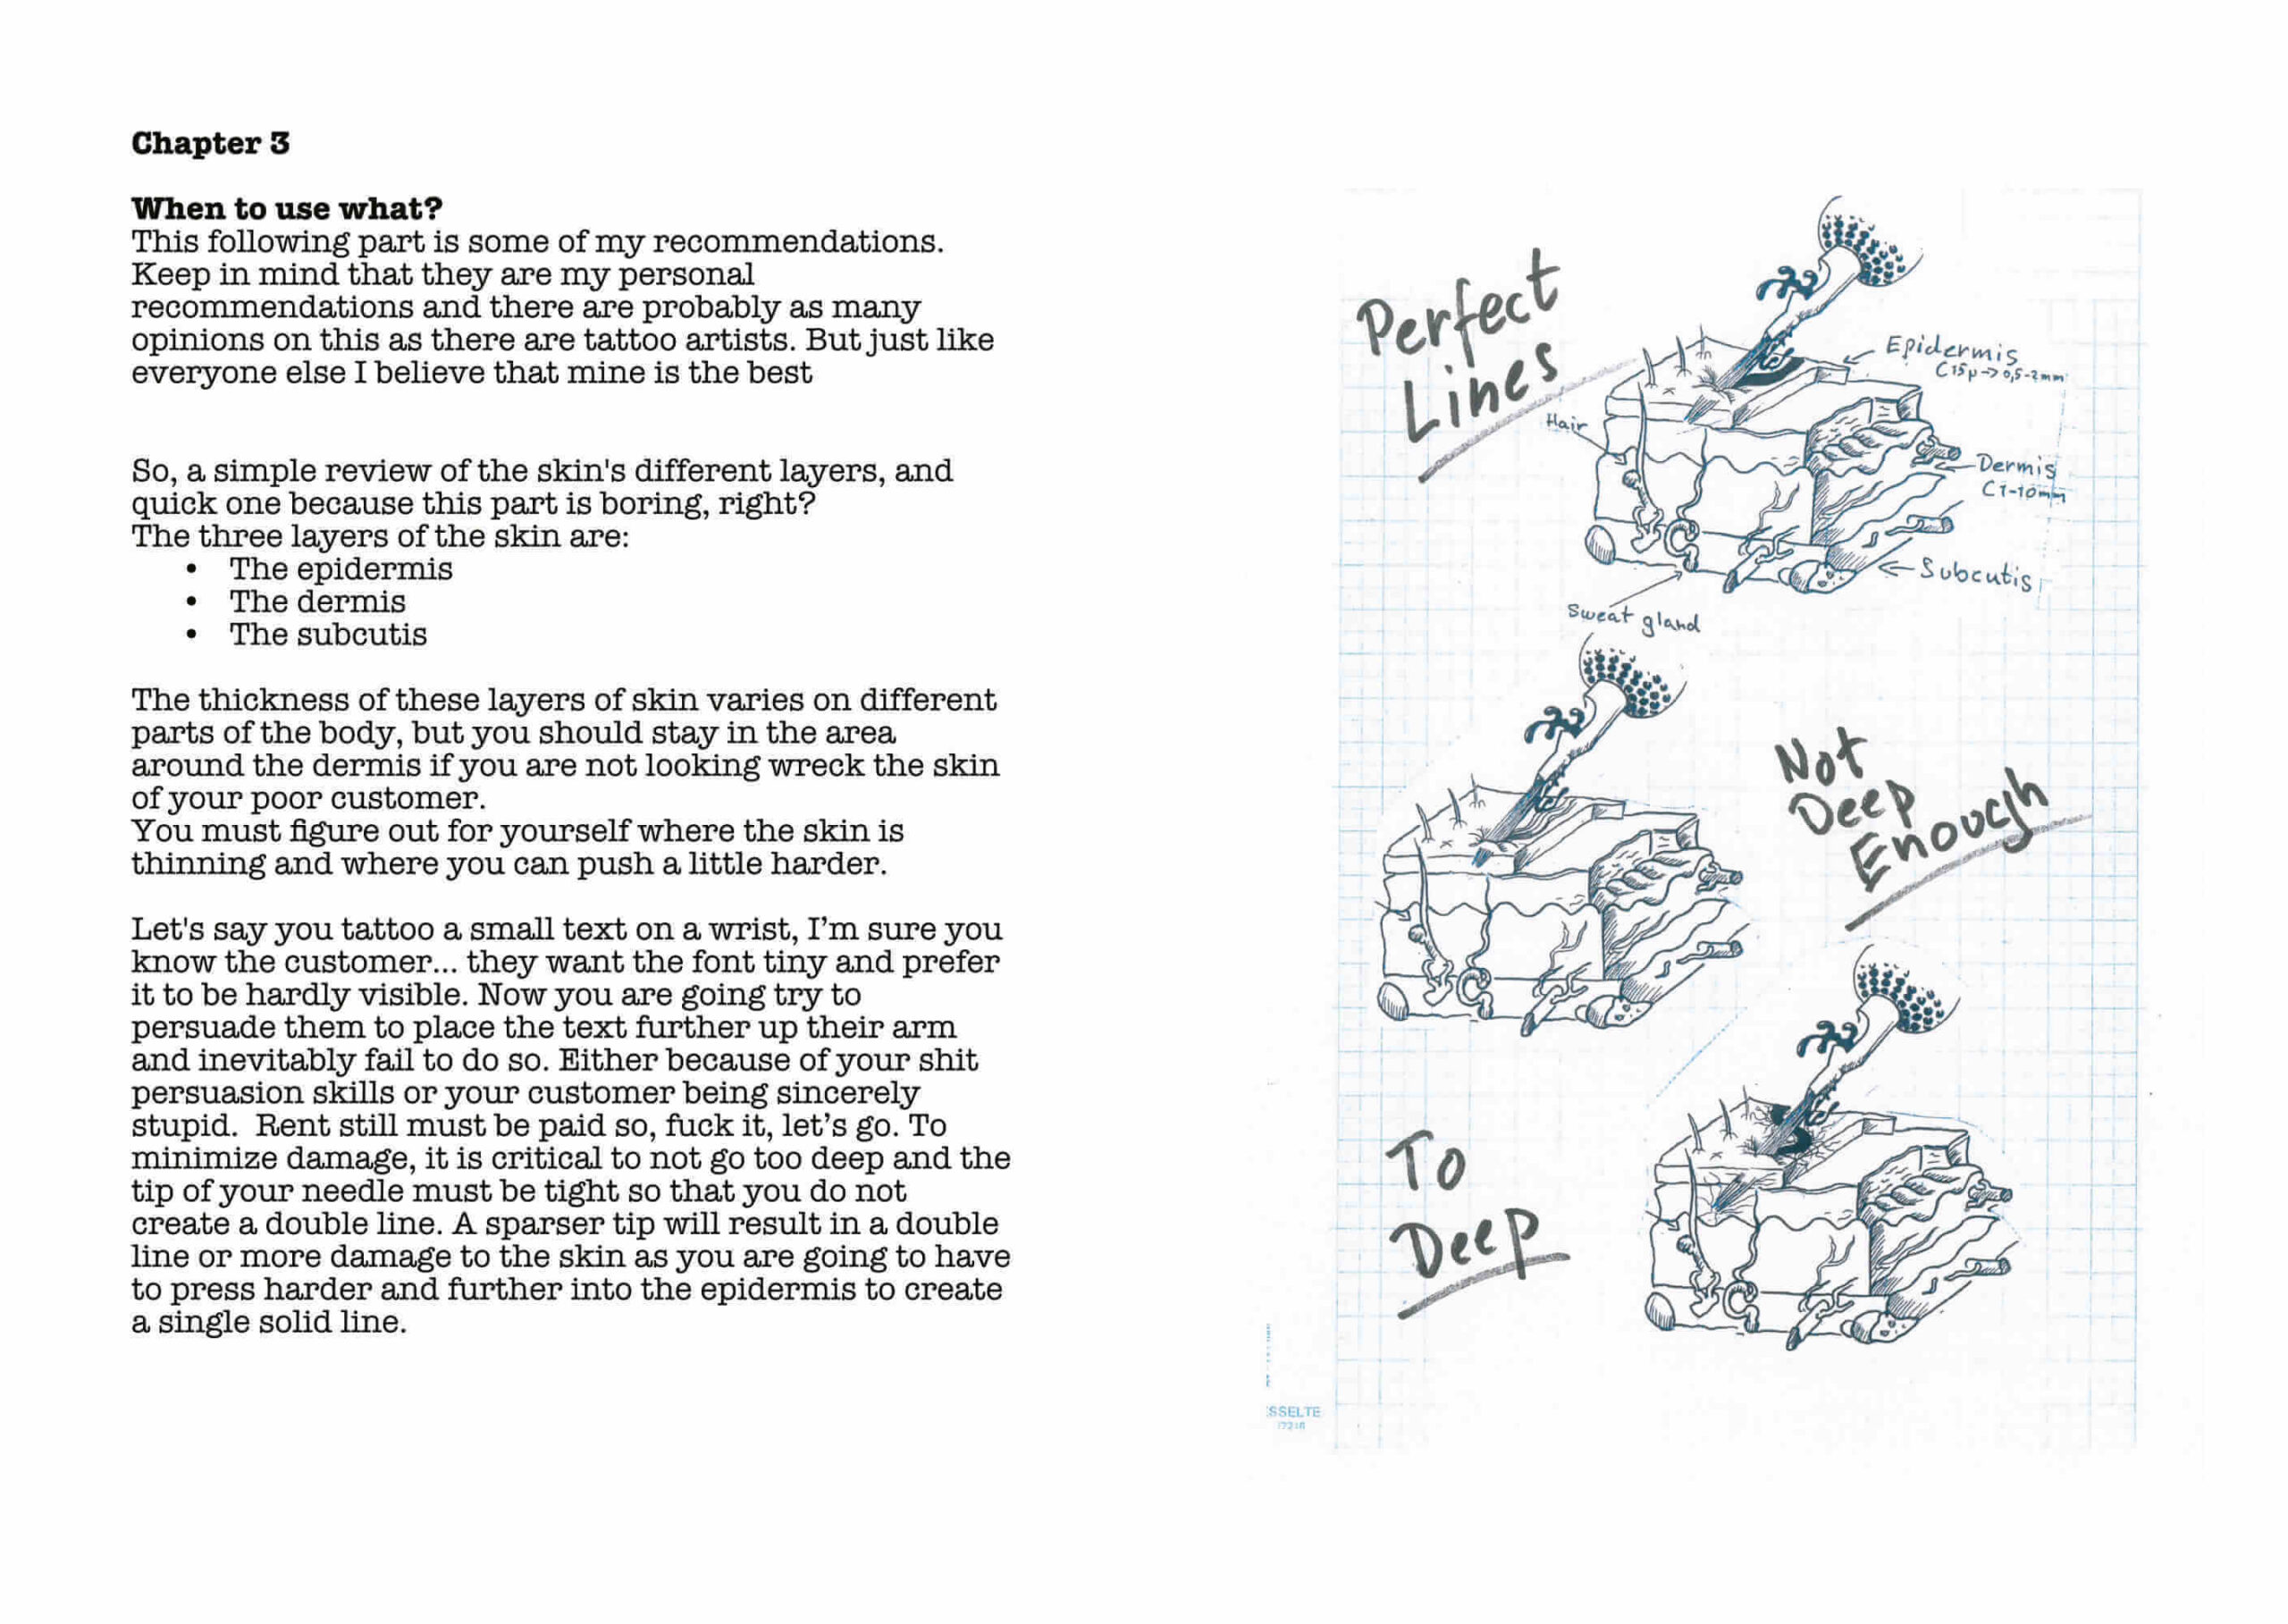 Chapter 3
When to use what?
This following part is some of my recommendations.
Keep in mind that they are my personal
recommendations and there are probably as many
opinions on this as there are tattoo artists. But just like
everyone else I believe that mine is the best
So, a simple review of the skin's different layers, and
quick one because this part is boring, right?
The three layers of the skin are:
• The epidermis
• The dermis
• The subcutis
The thickness of these layers of skin varies on different
parts of the body, but you should stay in the area
around the dermis if you are not looking wreck the skin
of your poor customer.
You must figure out for yourself where the skin is
thinning and where you can push a little harder.
Let's say you tattoo a small text on a wrist, I’m sure you
know the customer... they want the font tiny and prefer
it to be hardly visible. Now you are going try to
persuade them to place the text further up their arm
and inevitably fail to do so. Either because of your shit
persuasion skills or your customer being sincerely
stupid.  Rent still must be paid so, fuck it, let’s go. To
minimize damage, it is critical to not go too deep and the
tip of your needle must be tight so that you do not
create a double line. A sparser tip will result in a double
line or more damage to the skin as you are going to have
to press harder and further into the epidermis to create
a single solid line.
Perfect
Lines
Epidermis
C15µ->0,5-2mm
Hair
Dermis
C1-10mm
Subcutis
Sweat gland
Not
Deep
Enough
To
Deep
SSELTE